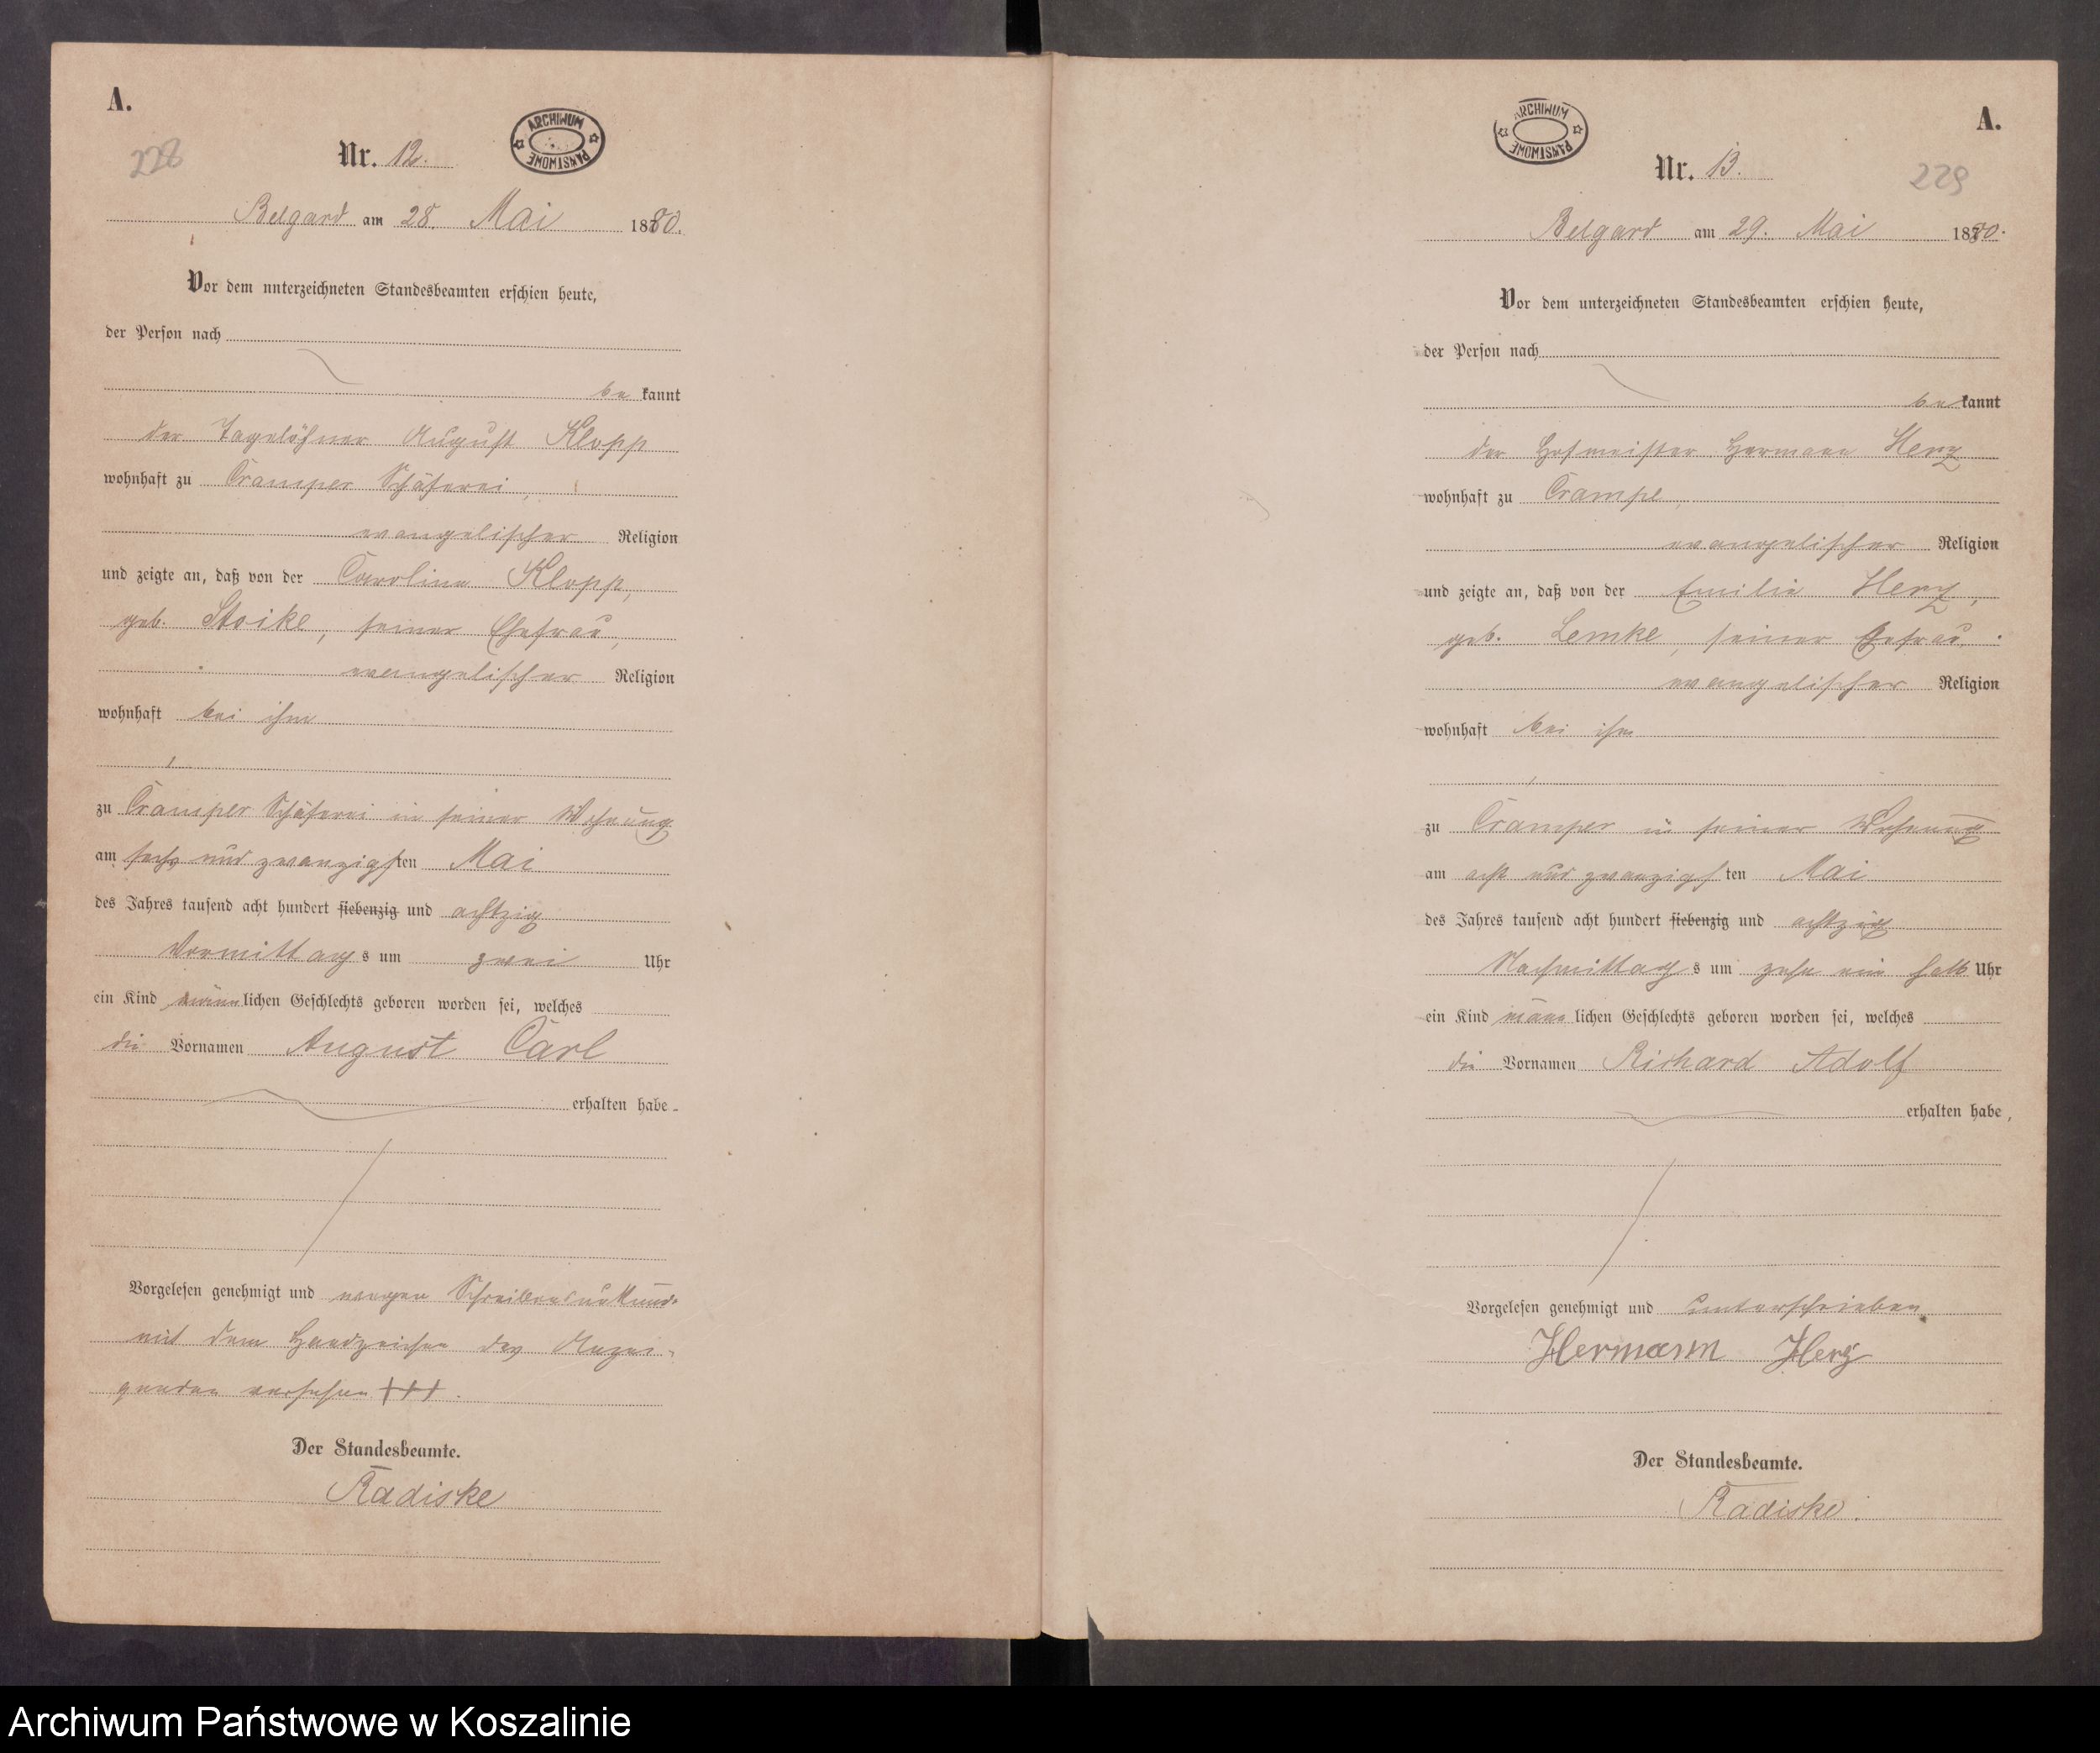 A.
228
Nr. 12.
ARCHIWUM PAŃSTWOWE
Belgard am 28. Mai 1880.
Vor dem unterzeichneten Standesbeamten erschien heute,
der Person nach
be kannt
der Tagelöhner August Klopp
wohnhaft zu Cramper Schäferei,
evangelischer Religion
und zeigte an, daß von der Caroline Klopp,
geb. Stoike, seiner Ehefrau,
evangelischer Religion
wohnhaft bei ihm
zu Cramper Schäferei in seiner Wohnung
am sechs und zwanzigsten Mai
des Jahres tausend acht hundert siebenzig und achtzig
Vormittags um zwei Uhr
ein Kind männlichen Geschlechts geboren worden sei, welches
die Vornamen August Carl
erhalten habe
Vorgelesen genehmigt und wegen Schreibensunkunde
mit dem Handzeichen des Anzei-
genden versehen +++.
Der Standesbeamte.
Radiske
A.
229
Nr. 13.
ARCHIWUM PAŃSTWOWE
Belgard am 29. Mai 1880.
Vor dem unterzeichneten Standesbeamten erschien heute,
der Person nach
be kannt
der Hofmeister Hermann Herz
wohnhaft zu Crampe,
evangelischer Religion
und zeigte an, daß von der Emilie Herz,
geb. Lemke, seiner Ehefrau,
evangelischer Religion
wohnhaft bei ihm
zu Crampe in seiner Wohnung
am acht und zwanzigsten Mai
des Jahres tausend acht hundert siebenzig und achtzig
Nachmittags um zehn ein halb Uhr
ein Kind männlichen Geschlechts geboren worden sei, welches
die Vornamen Richard Adolf
erhalten habe,
Vorgelesen genehmigt und unterschrieben
Hermann Herz
Der Standesbeamte.
Radiske.
Archiwum Państwowe w Koszalinie